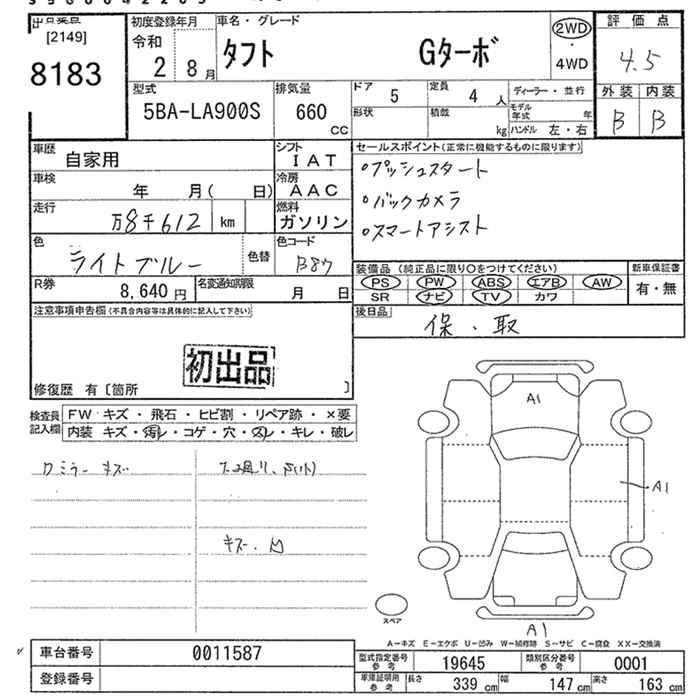 [2149]
8183
初度登録年月
令和
2 8月
車名・グレード
タフト Gターボ
2WD
・
4WD
評価点
4.5
外装 内装
B B
型式
5BA-LA900S
排気量
660
CC
ドア
5
定員
4 人
形状
積載
kg
ディーラー・並行
モデル年式 年
ハンドル 左・右
車歴
自家用
シフト
IAT
車検
年 月( 日)
冷房
AAC
走行
万8千612 km
燃料
ガソリン
色
ライトブルー
色替
色コード
B87
R券
8,640 円
名変通知期限
月 日
セールスポイント(正常に機能するものに限ります)
○プッシュスタート
○バックカメラ
○スマートアシスト
装備品(純正品に限り○をつけてください)
PS PW ABS エアB AW
SR ナビ TV カワ
新車保証書
有・無
後日品
保、取
注意事項申告欄(不具合内容等は具体的に記入して下さい)
初出品
修復歴 有〔箇所 〕
検査員記入欄
FW キズ・飛石・ヒビ割・リペア跡・×要
内装 キズ・汚レ・コゲ・穴・スレ・キレ・破レ
ワミラー キズ
キズ、凹
A1
A1
A1
スペア
A-キズ E-エクボ U-凹み W-補修跡 S-サビ C-腐食 XX-交換済
車台番号
0011587
登録番号
型式指定番号 参考
19645
類別区分番号 参考
0001
車庫証明用 参考
長さ 339 cm
幅 147 cm
高さ 163 cm